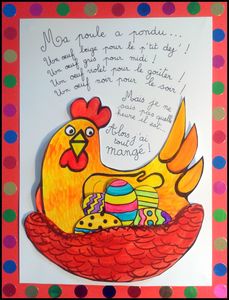 Ma poule a pondu...
Un œuf beige pour le p'tit dej' !
Un œuf gris pour midi !
Un œuf violet pour le goûter !
Un œuf noir pour le soir !
Mais je ne
sais pas quelle
heure il est...
Alors j'ai
tout
mangé !